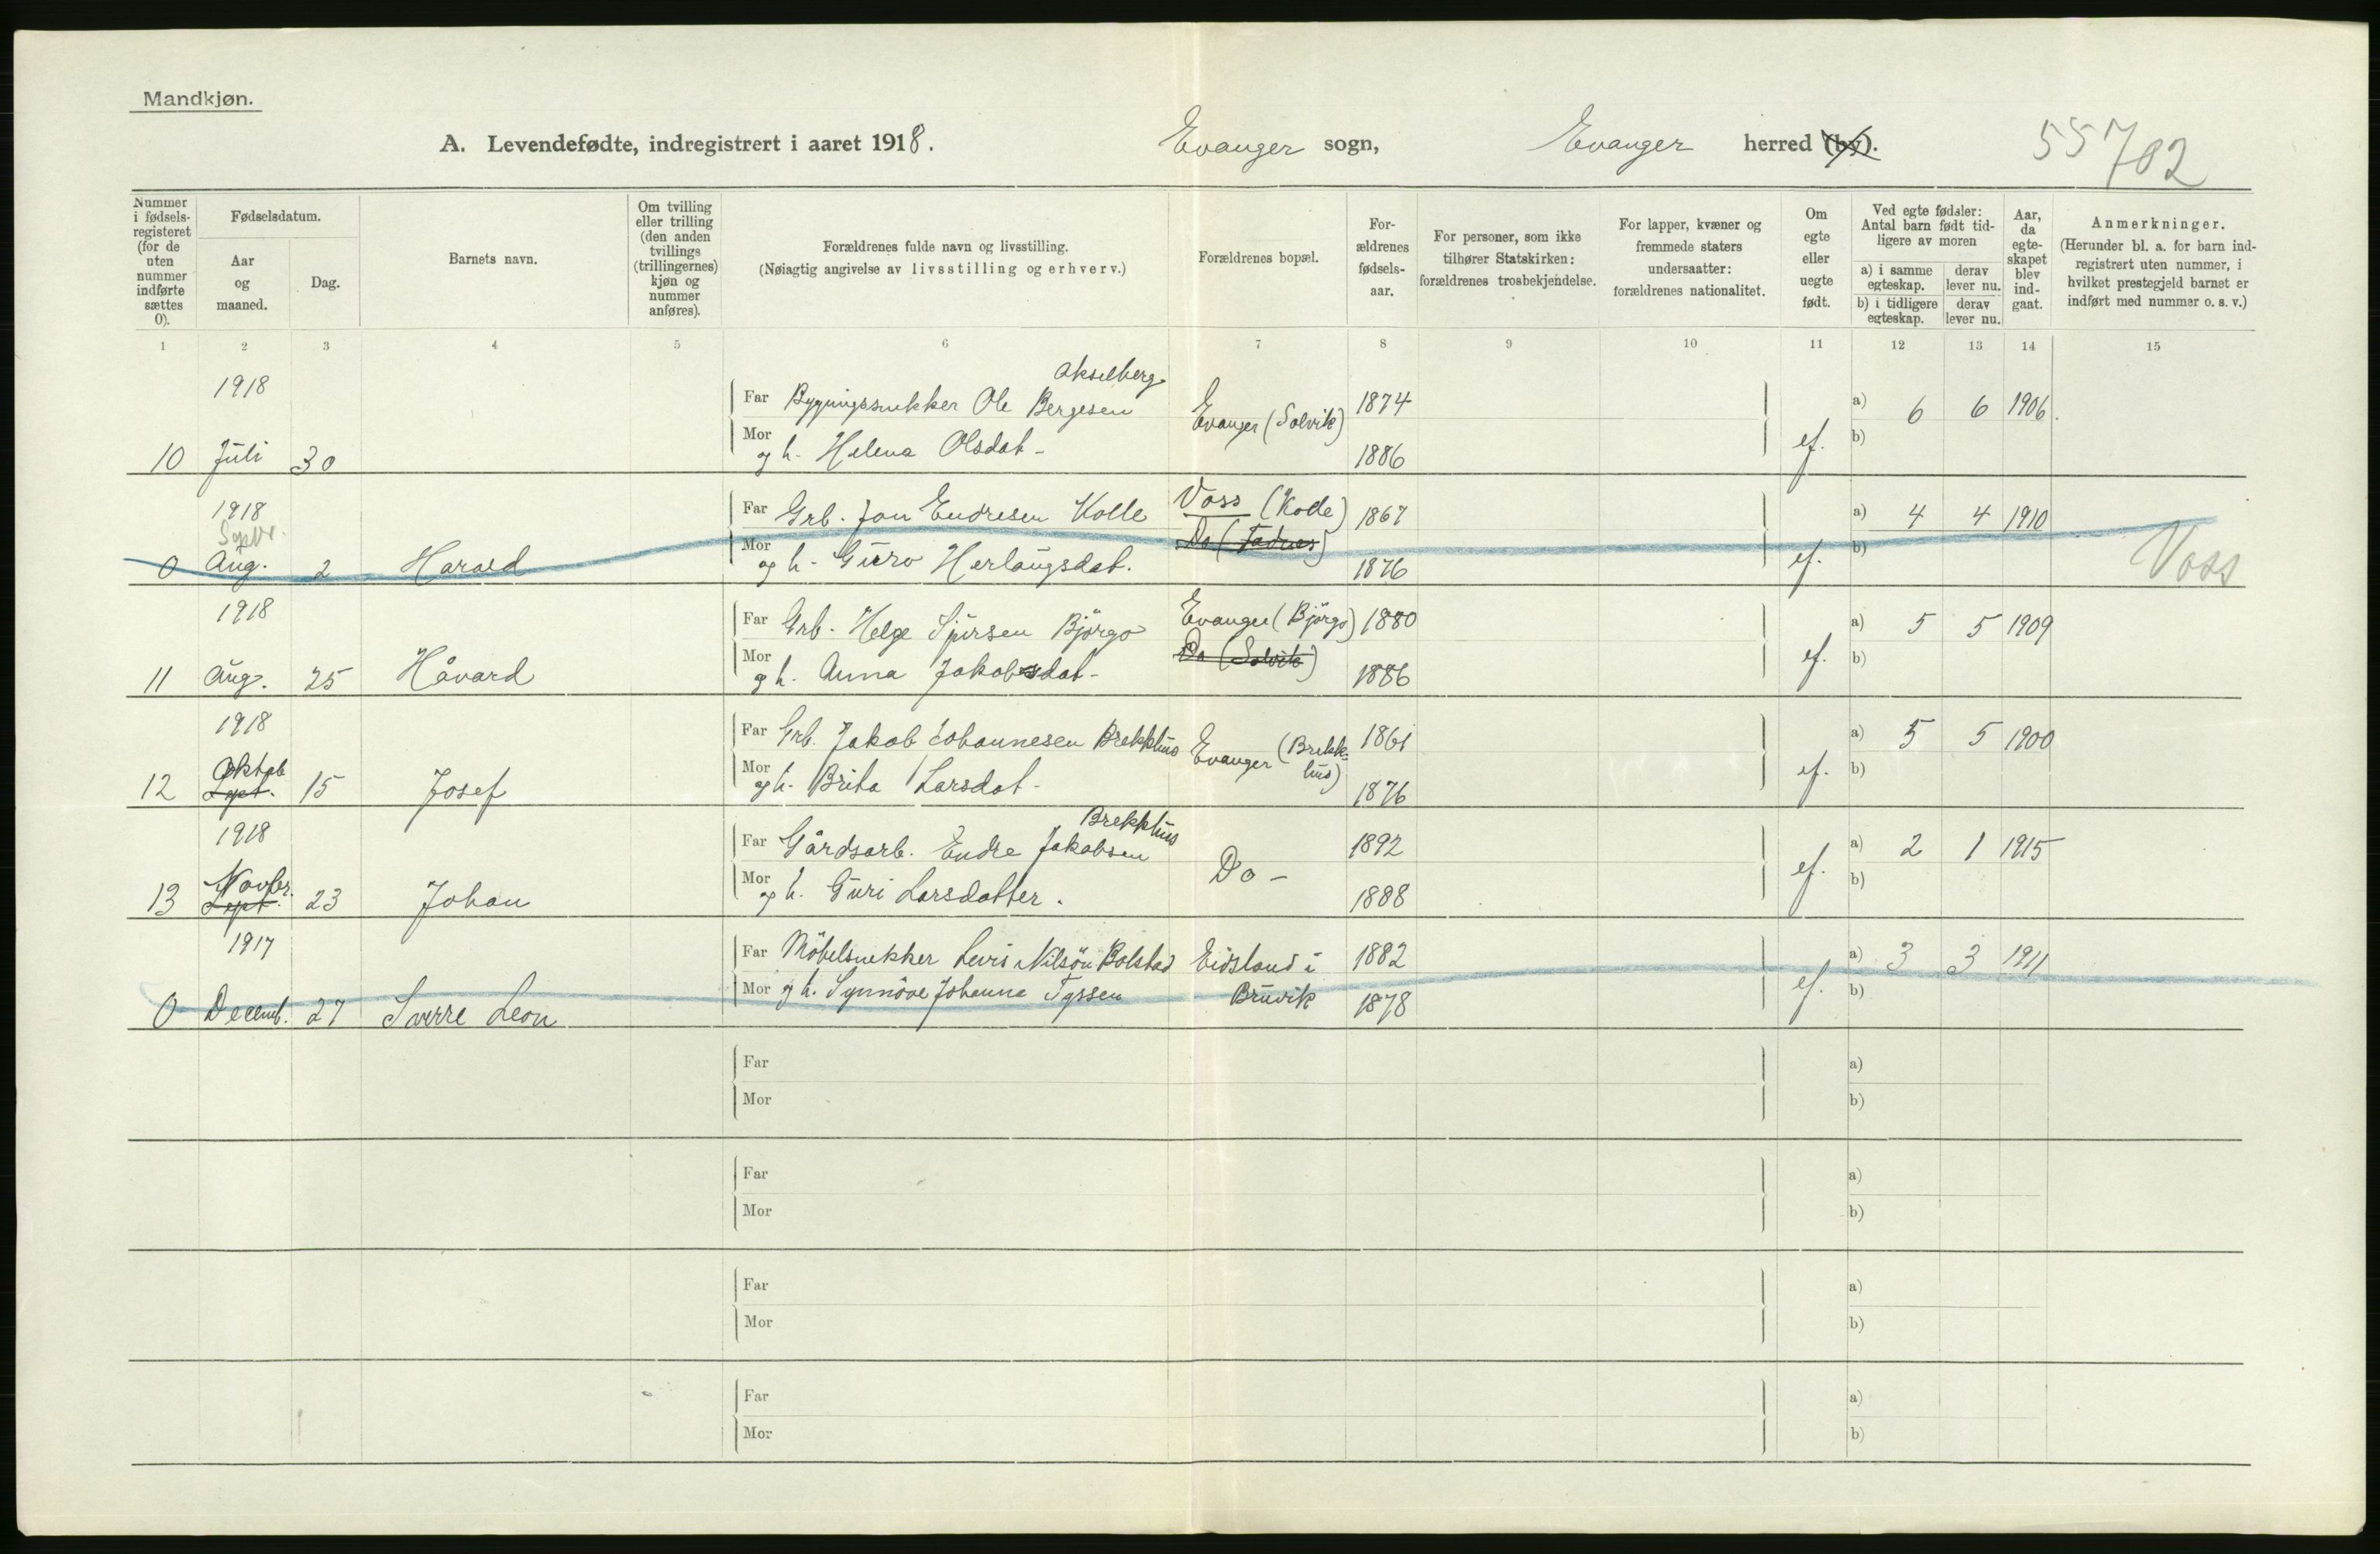 Mandkjøn.
A. Levendefødte, indregistrert i aaret 1918. Evanger sogn, Evanger herred (by). 55702
Nummer i fødsels-registeret (for de uten nummer indførte sættes 0).
Fødselsdatum.
Aar og maaned.
Dag.
Barnets navn.
Om tvilling eller trilling (den anden tvillings (trillingernes) kjøn og nummer anføres).
Forældrenes fulde navn og livsstilling.
(Nøiagtig angivelse av livsstilling og erhverv.)
Forældrenes bopæl.
For-ældrenes fødsels-aar.
For personer, som ikke tilhører Statskirken: forældrenes trosbekjendelse.
For lapper, kvæner og fremmede staters undersaatter: forældrenes nationalitet.
Om egte eller uegte født.
Ved egte fødsler: Antal barn født tid-ligere av moren
a) i samme egteskap. derav lever nu.
b) i tidligere egteskap. derav lever nu.
Aar, da egte-skapet blev ind-gaat.
Anmerkninger.
(Herunder bl. a. for barn ind-registrert uten nummer, i hvilket prestegjeld barnet er indført med nummer o. s. v.)
1 2 3 4 5 6 7 8 9 10 11 12 13 14 15
Akselberg
1918 Far Bygningssnekker Ole Bergesen Evanger (Solvik) 1874 a) 6 6 1906.
10 Juli 30 Mor og h. Helena Olsdat- 1886 ef. b)
1918 Far Grb. Jon Endresen Kolle Voss (Kolle) 1867 a) 4 4 1910
Septr.
0 Aug. 2 Harald Mor og h. Guro Herlaugsdat. Do (Fadnes) 1876 ef. b) Voss
1918 Far Grb. Helge Sjursen Björgo Evanger (Björgo) 1880 a) 5 5 1909
11 Aug. 25 Håvard Mor og h. Anna Jakobsdat- Do (Solvik) 1886 ef. b)
1918 Far Grb. Jakob Johannesen Brekkhus Evanger (Brekk-hus) 1861 a) 5 5 1900
Oktob
12 Sept. 15 Josef Mor og h. Brita Larsdat- 1876 ef. b)
Brekkhus
1918 Far Gårdsarb. Endre Jakobsen Do - 1892 a) 2 1 1915
Novbr.
13 Sept. 23 Johan Mor og h. Guri Larsdatter. 1888 ef. b)
1917 Far Möbelsnekker Levis Nilsön Bolstad Eidsland i 1882 a) 3 3 1911
0 Decemb. 27 Sverre Leon Mor og h. Synnöve Johanna Tyssen Bruvik 1878 ef. b)
Far a)
Mor b)
Far a)
Mor b)
Far a)
Mor b)
Far a)
Mor b)